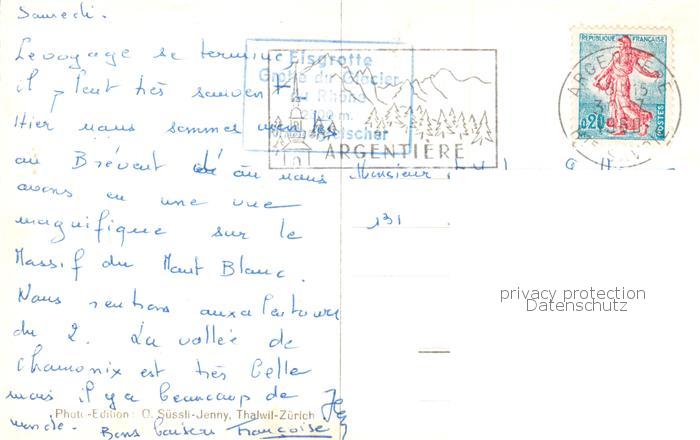 Samedi.
Le voyage se termine
il pleut très souvent
Hier nous sommes montés
au Brévent où nous
avons eu une vue
magnifique sur le
Massif du Mont Blanc.
Nous rentrons aux alentours
du 2. La vallée de
chamonix est très belle
mais il y a beaucoup de
monde. Bons baisers Françoise
Photo-Edition: O. Süssli-Jenny, Thalwil-Zürich
Eisgrotte
Grotte du Glacier
du Rhône
ARGENTIÈRE
REPUBLIQUE FRANÇAISE
0,20
POSTES
Monsieur
131
privacy protection
Datenschutz